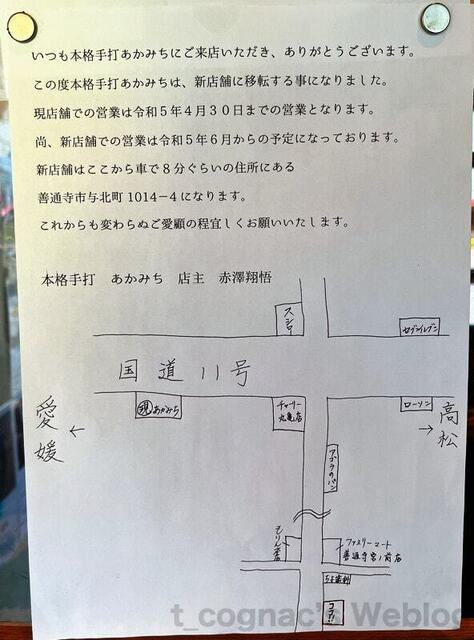 いつも本格手打あかみちにご来店いただき、ありがとうございます。
この度本格手打あかみちは、新店舗に移転する事になりました。
現店舗での営業は令和5年4月30日までの営業となります。
尚、新店舗での営業は令和5年6月からの予定になっております。
新店舗はここから車で8分ぐらいの住所にある
善通寺市与北町1014-4になります。
これからも変わらぬご愛顧の程宜しくお願いいたします。
本格手打 あかみち 店主 赤澤翔悟
スシロー
セブンイレブン
国道11号
現 あかみち
チャーリー
丸亀店
ローソン
愛媛 ←
→ 高松
アゴラのパン
ファミリーマート
善通寺宮ノ前店
ココ!!
t_cognac's Weblog